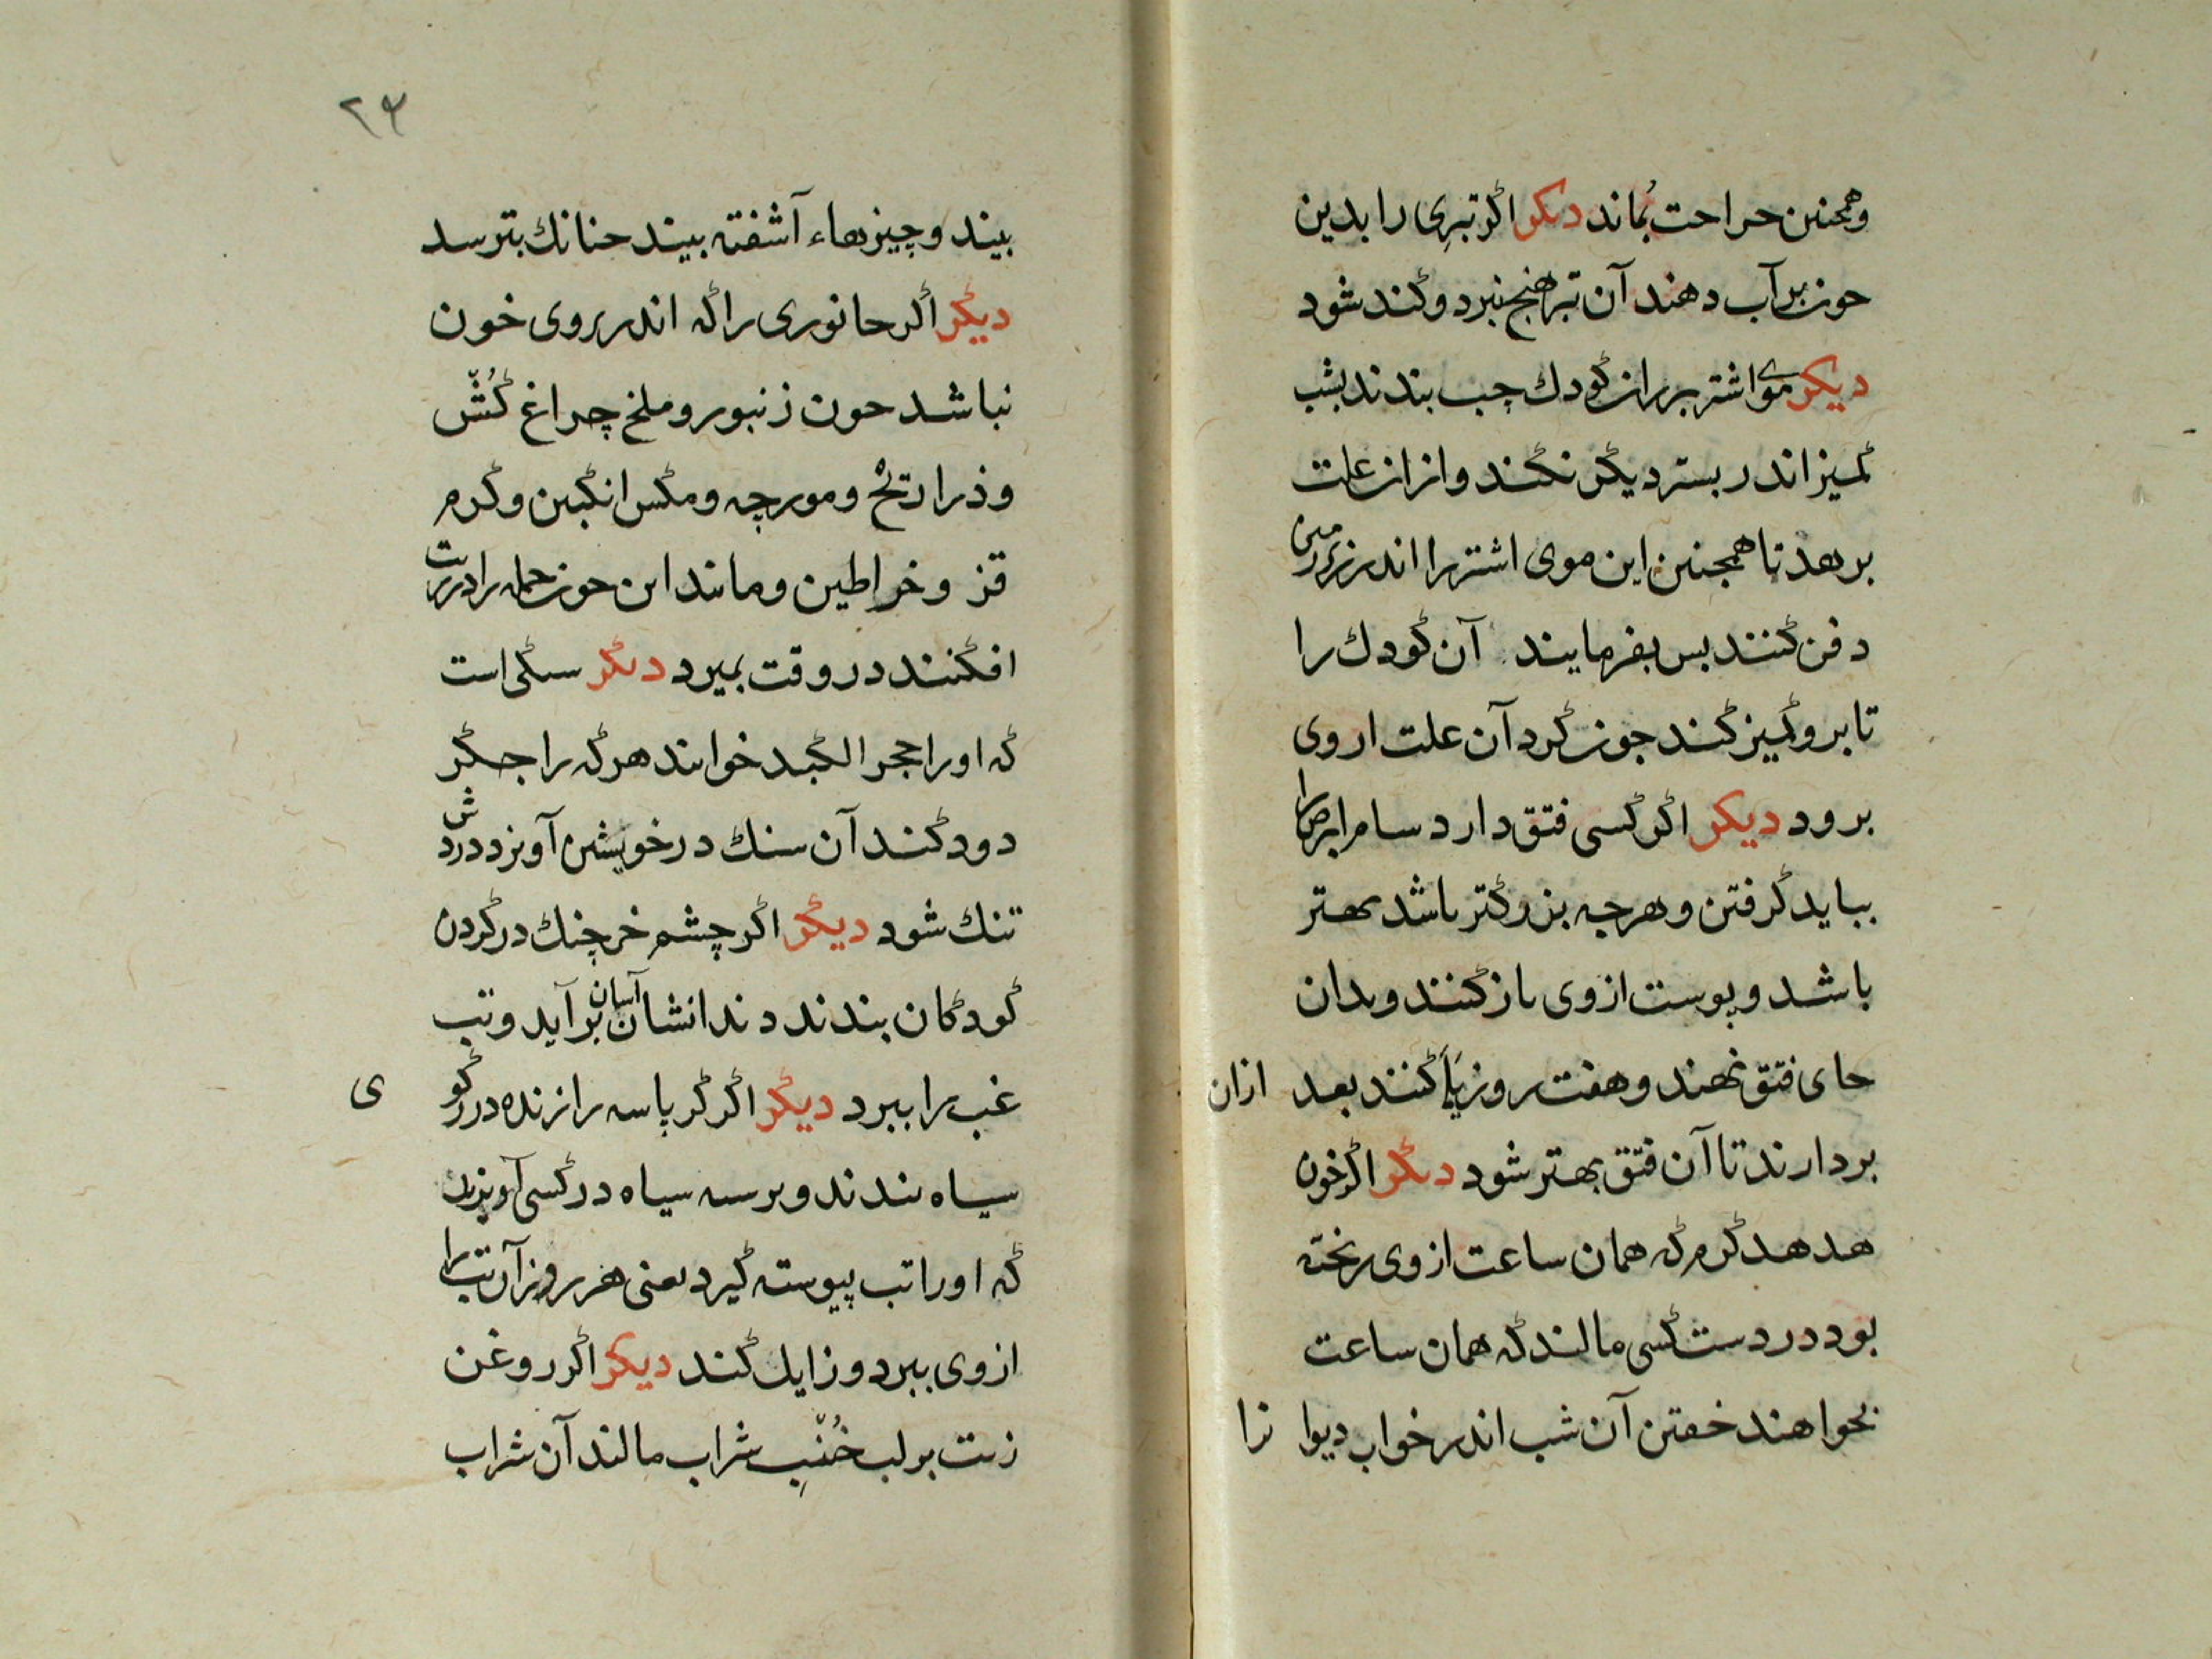 وهمجنین حراحت بُماند دیکر اکر تبرِی را بدین
حون بر آب دهند آن تبر هیج نبرد وکند شود
دیکر موی اشتر بر ران کودك چب بندند بشب
کمیز اندر بستر دیکر نکند و از ان علت
برهد تا همجنین این موی اشتر را اندر زیر زمین
دفن کنند بس بفرمایند آن کودك را
تا برو کمیز کند جون کرد آن علت ار وی
برود دیکر اکر کسی فتق دارد سام ابرص را
بباید کرفتن و هرجه بزرکتر باشد بهتر
باشد و پوست از وی بازکنند و بدان
حای فتق نهند و هفت روز رها کنند بعد ازان
بردارند تا آن فتق بهتر شود دیکر اکر خون
هدهد کرم که همان ساعت از وی ریخته
بود در دست کسی مالند که همان ساعت
بخواهند خفتن آن شب اندر خواب دیوانرا
۲۴
بیند و چیزهاء آشفته بیند حنانك بترسد
دیکر اکر حانوری را که اندر روی خون
نباشد حون زنبور و ملخ چراغ کُشّ
و ذراریح و مورچه و مکس انکبین و کرم
قز و خراطین و مانند این حون حمله را در زیت
افکنند در وقت بمیرد دیکر سنکی است
که او را حجر الکبد خوانند هرکه را جکر
درد کند آن سنك در خویشتن آویزد دردش
تنك شود دیکر اکر چشم خرچنك در کردن
کودکان بندند دندانشان آسان بر آید و تب
غب را ببرد دیکر اکر کرباسه را زنده در رکوی
سیاه بندند و برسه سیاه در کسی آویزند
که او را تب پیوسته کیرد یعنی هر روز آن تب را
از وی ببرد و زایل کند دیکر اکر روغن
زیت بر لب خُنّبِ شراب مالند آن شراب